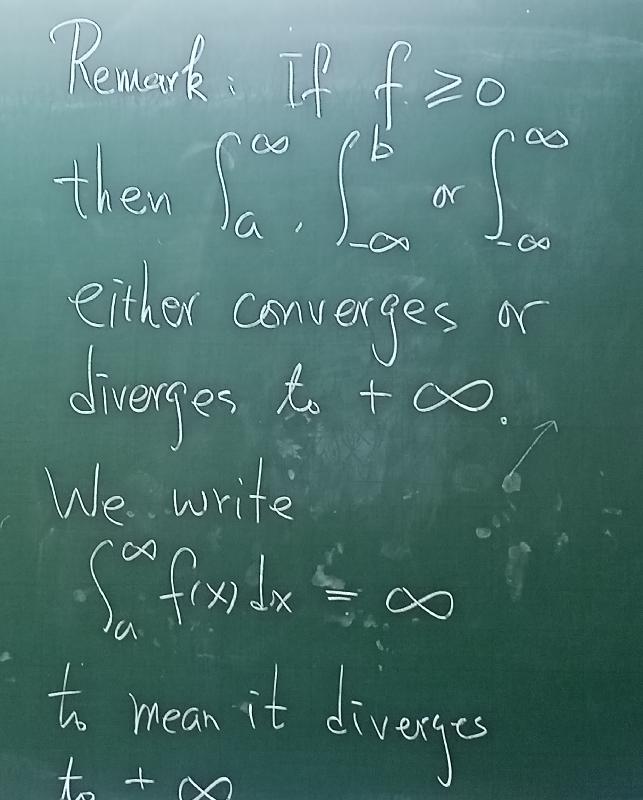 Remark: If f ≥ 0
then ∫_a^∞, ∫_{-∞}^b or ∫_{-∞}^∞
either converges or
diverges to +∞.
We write
∫_a^∞ f(x) dx = ∞
to mean it diverges
to +∞